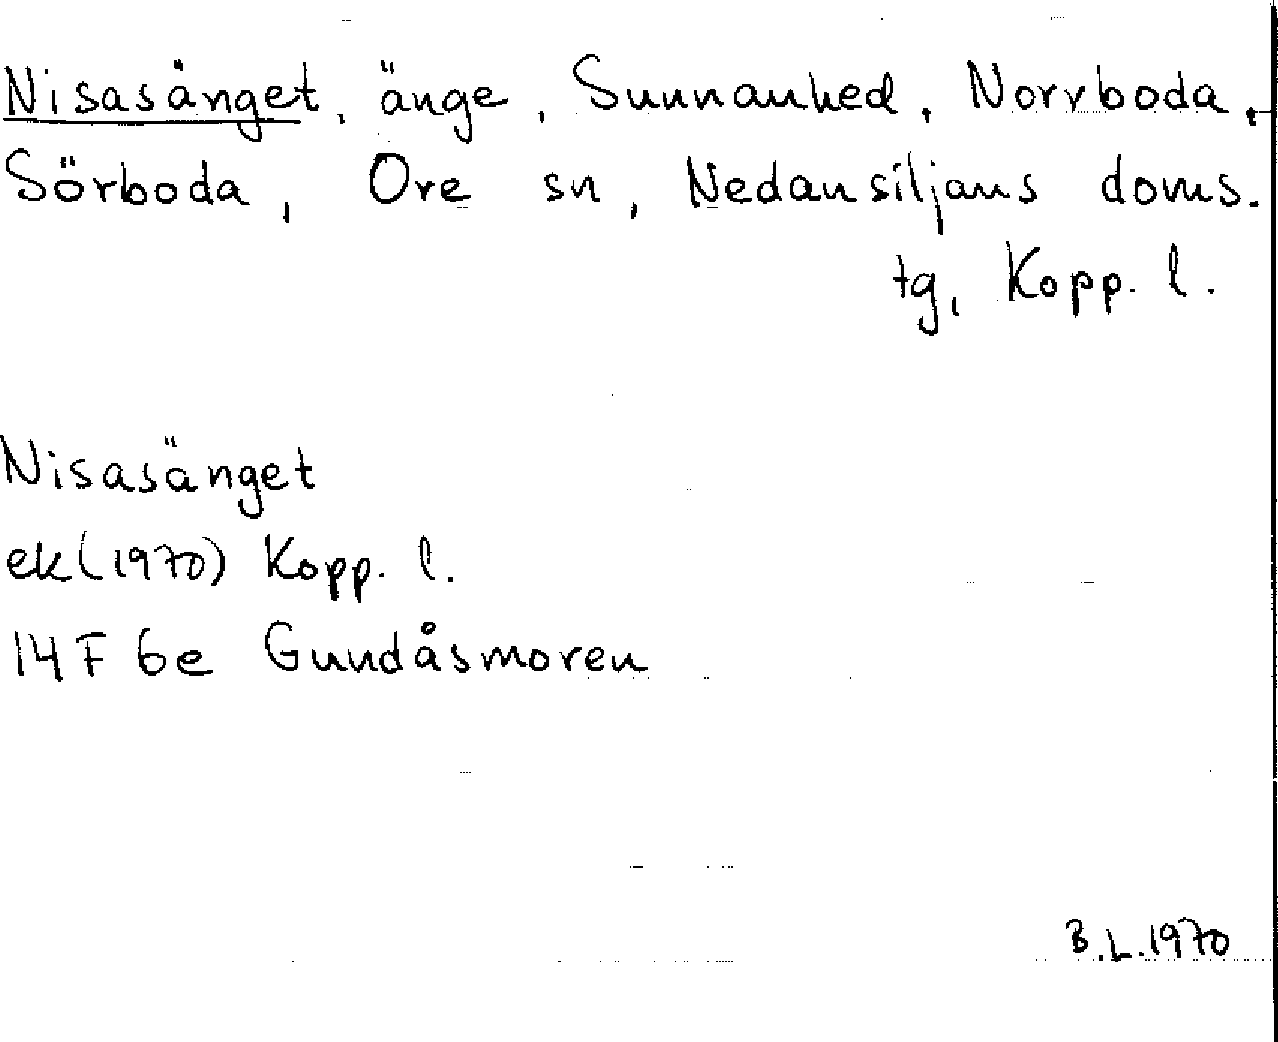 Nisasänget, änge, Sunnanhed, Norrboda,
Sörboda, Ore sn, Nedansiljans doms.
tg, Kopp. l.
Nisasänget
ek (1970) Kopp. l.
14 F 6e Gundåsmoren
B.L. 1970